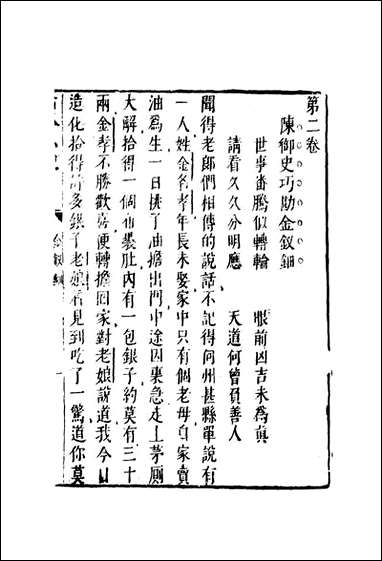 第二卷
陳御史巧勘金釵鈿
世事番騰似轉輪　眼前凶吉未為真
請看久久分明應　天道何曾負善人
聞得老郎們相傳的說話不記得何州甚縣單說有
一人姓金名孝年長未娶家中只有個老母自家賣
油為生一日挑了油擔出門中途因裏急走上茅厠
大解拾得一個布裹肚內有一包銀子約莫有三十
兩金孝不勝歡喜便轉擔回家對老娘說道我今日
造化拾得許多銀子老娘看見到吃了一驚道你莫